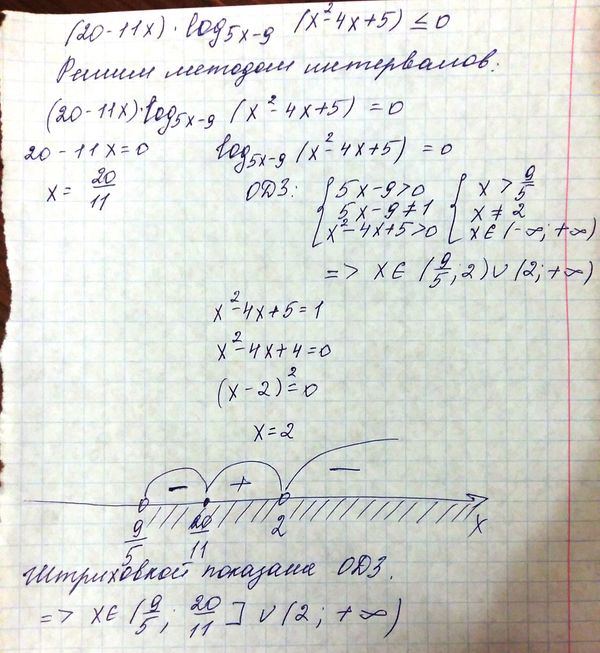 (20-11x)·log₅ₓ₋₉ (x²-4x+5) ≤ 0
Решим методом интервалов:
(20-11x)·log₅ₓ₋₉ (x²-4x+5) = 0
20-11x=0 log₅ₓ₋₉ (x²-4x+5) = 0
x = 20/11 ОДЗ: { 5x-9>0 { x > 9/5
5x-9≠1 x ≠ 2
x²-4x+5>0 x∈(-∞; +∞)
=> x∈(9/5; 2)∪(2; +∞)
x²-4x+5=1
x²-4x+4=0
(x-2)²=0
x=2
− + −
9/5 20/11 2 x
Штриховкой показана ОДЗ.
=> x∈(9/5; 20/11]∪(2; +∞)